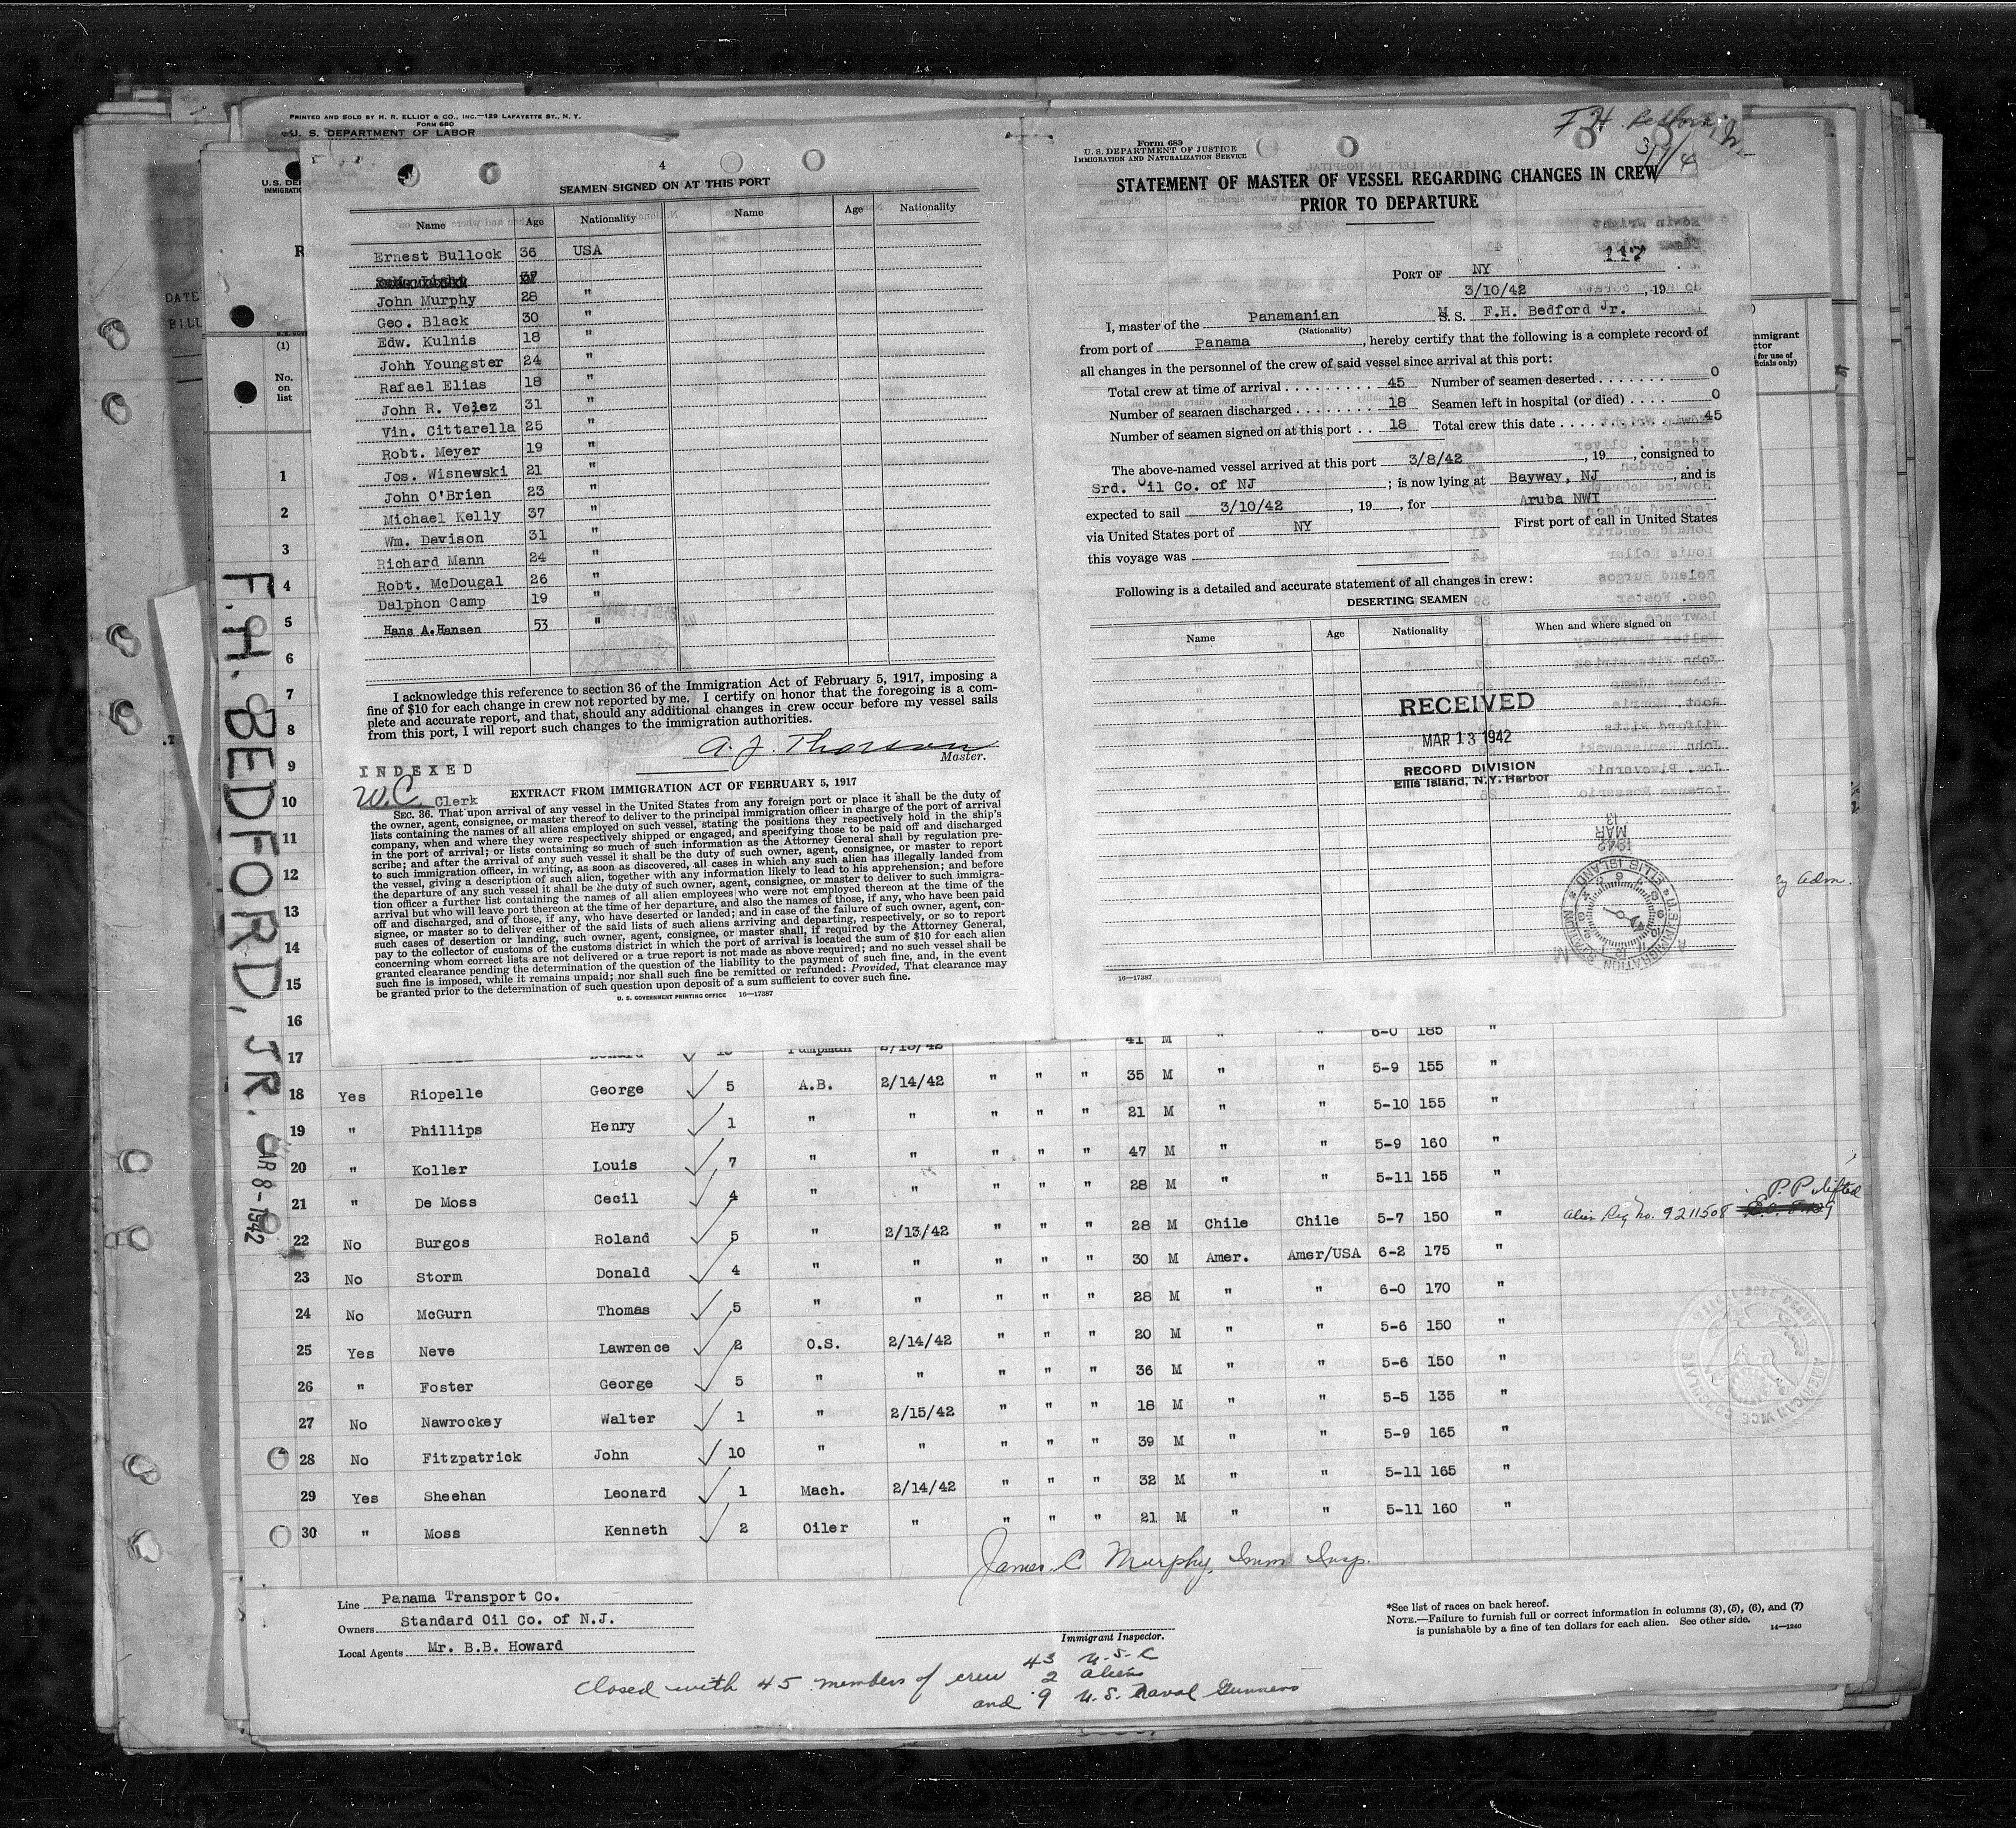 PRINTED AND SOLD BY H. R. ELLIOT & CO., INC.—129 LAFAYETTE ST., N. Y.
FORM 680
U. S. DEPARTMENT OF LABOR
4
SEAMEN SIGNED ON AT THIS PORT
Name Age Nationality Name Age Nationality
Ernest Bullock 36 USA
John Murphy 28 "
Geo. Black 30 "
Edw. Kulnis 18 "
John Youngster 24 "
Rafael Elias 18 "
John R. Velez 31 "
Vin. Cittarella 25 "
Robt. Meyer 19 "
Jos. Wisnewski 21 "
John O'Brien 23 "
Michael Kelly 37 "
Wm. Davison 31 "
Richard Mann 24 "
Robt. McDougal 26 "
Dalphon Camp 19 "
Hans A. Hansen 53 "
I acknowledge this reference to section 36 of the Immigration Act of February 5, 1917, imposing a
fine of $10 for each change in crew not reported by me. I certify on honor that the foregoing is a com-
plete and accurate report, and that, should any additional changes in crew occur before my vessel sails
from this port, I will report such changes to the immigration authorities.
A. J. Thorson
Master.
INDEXED
W.C. Clerk
EXTRACT FROM IMMIGRATION ACT OF FEBRUARY 5, 1917
SEC. 36. That upon arrival of any vessel in the United States from any foreign port or place it shall be the duty of
the owner, agent, consignee, or master thereof to deliver to the principal immigration officer in charge of the port of arrival
lists containing the names of all aliens employed on such vessel, stating the positions they respectively hold in the ship's
company, when and where they were respectively shipped or engaged, and specifying those to be paid off and discharged
in the port of arrival; or lists containing so much of such information as the Attorney General shall by regulation pre-
scribe; and after the arrival of any such vessel it shall be the duty of such owner, agent, consignee, or master to report
to such immigration officer, in writing, as soon as discovered, all cases in which any such alien has illegally landed from
the vessel, giving a description of such alien, together with any information likely to lead to his apprehension; and before
the departure of any such vessel it shall be the duty of such owner, agent, consignee, or master to deliver to such immigra-
tion officer a further list containing the names of all alien employees who were not employed thereon at the time of the
arrival but who will leave port thereon at the time of her departure, and also the names of those, if any, who have been paid
off and discharged, and of those, if any, who have deserted or landed; and in case of the failure of such owner, agent, con-
signee, or master so to deliver either of the said lists of such aliens arriving and departing, respectively, or so to report
such cases of desertion or landing, such owner, agent, consignee, or master shall, if required by the Attorney General,
pay to the collector of customs of the customs district in which the port of arrival is located the sum of $10 for each alien
concerning whom correct lists are not delivered or a true report is not made as above required; and no such vessel shall be
granted clearance pending the determination of the question of the liability to the payment of such fine, and, in the event
such fine is imposed, while it remains unpaid; nor shall such fine be remitted or refunded: Provided, That clearance may
be granted prior to the determination of such question upon deposit of a sum sufficient to cover such fine.
U. S. GOVERNMENT PRINTING OFFICE 16—17387
F. H. Bedford, Jr.
Form 689
U. S. DEPARTMENT OF JUSTICE
IMMIGRATION AND NATURALIZATION SERVICE
STATEMENT OF MASTER OF VESSEL REGARDING CHANGES IN CREW
PRIOR TO DEPARTURE
117
PORT OF NY
3/10/42, 19
I, master of the Panamanian M S.S. F.H. Bedford Jr.
(Nationality)
from port of Panama, hereby certify that the following is a complete record of
all changes in the personnel of the crew of said vessel since arrival at this port:
Total crew at time of arrival 45 Number of seamen deserted 0
Number of seamen discharged 18 Seamen left in hospital (or died) 0
Number of seamen signed on at this port 18 Total crew this date 45
The above-named vessel arrived at this port 3/8/42, 19, consigned to
Srd. Oil Co. of NJ; is now lying at Bayway, NJ, and is
expected to sail 3/10/42, 19, for Aruba NWI
via United States port of NY First port of call in United States
this voyage was
Following is a detailed and accurate statement of all changes in crew:
DESERTING SEAMEN
Name Age Nationality When and where signed on
RECEIVED
MAR 13 1942
RECORD DIVISION
Ellis Island, N.Y. Harbor
16—17387
F.H. BEDFORD, JR.
MAR 8-1942
(1)
No.
on
list
1
2
3
4
5
6
7
8
9
10
11
12
13
14
15
16
17 Pumpman 2/13/42 " " " 41 M " " 6-0 185 "
18 Yes Riopelle George 5 A.B. 2/14/42 " " " 35 M " " 5-9 155 "
19 " Phillips Henry 1 " " " " " 21 M " " 5-10 155 "
20 " Koller Louis 7 " " " " 47 M " " 5-9 160 "
21 " De Moss Cecil 4 " " " " " 28 M " " 5-11 155
22 No Burgos Roland 5 " 2/13/42 " " " 28 M Chile Chile 5-7 150 " alien Reg No. 9211508 P. P. lifted
23 No Storm Donald 4 " " " " " 30 M Amer. Amer/USA 6-2 175 "
24 No McGurn Thomas 5 " " " " " 28 M " " 6-0 170 "
25 Yes Neve Lawrence 2 O.S. 2/14/42 " " " 20 M " " 5-6 150 "
26 " Foster George 5 " " " " " 36 M " " 5-6 150 "
27 No Nawrockey Walter 1 " 2/15/42 " " " 18 M " " 5-5 135 "
28 No Fitzpatrick John 10 " " " " " 39 M " " 5-9 165 "
29 Yes Sheehan Leonard 1 Mach. 2/14/42 " " " 32 M " " 5-11 165 "
30 " Moss Kenneth 2 Oiler " " " " 21 M " " 5-11 160 "
James C Murphy, Imm Insp.
Line Panama Transport Co.
Owners Standard Oil Co. of N.J.
Local Agents Mr. B.B. Howard
Immigrant Inspector.
*See list of races on back hereof.
NOTE.—Failure to furnish full or correct information in columns (3), (5), (6), and (7)
is punishable by a fine of ten dollars for each alien. See other side.
14—1240
closed with 45 members of crew 43 U.S.C
2 aliens
and 9 U.S. Naval Gunners